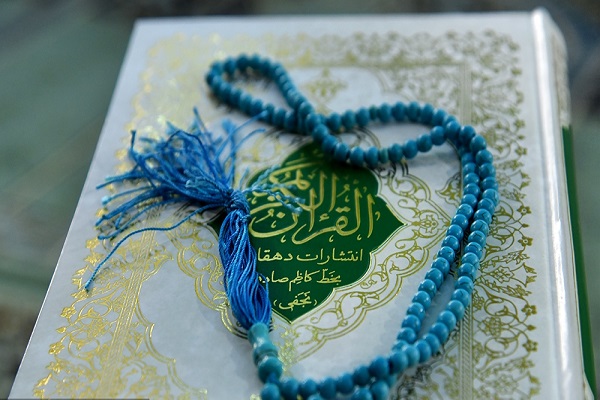 القرآن الكريم
انتشارات دهقا
بخط کاظم صاد
(نجفی)